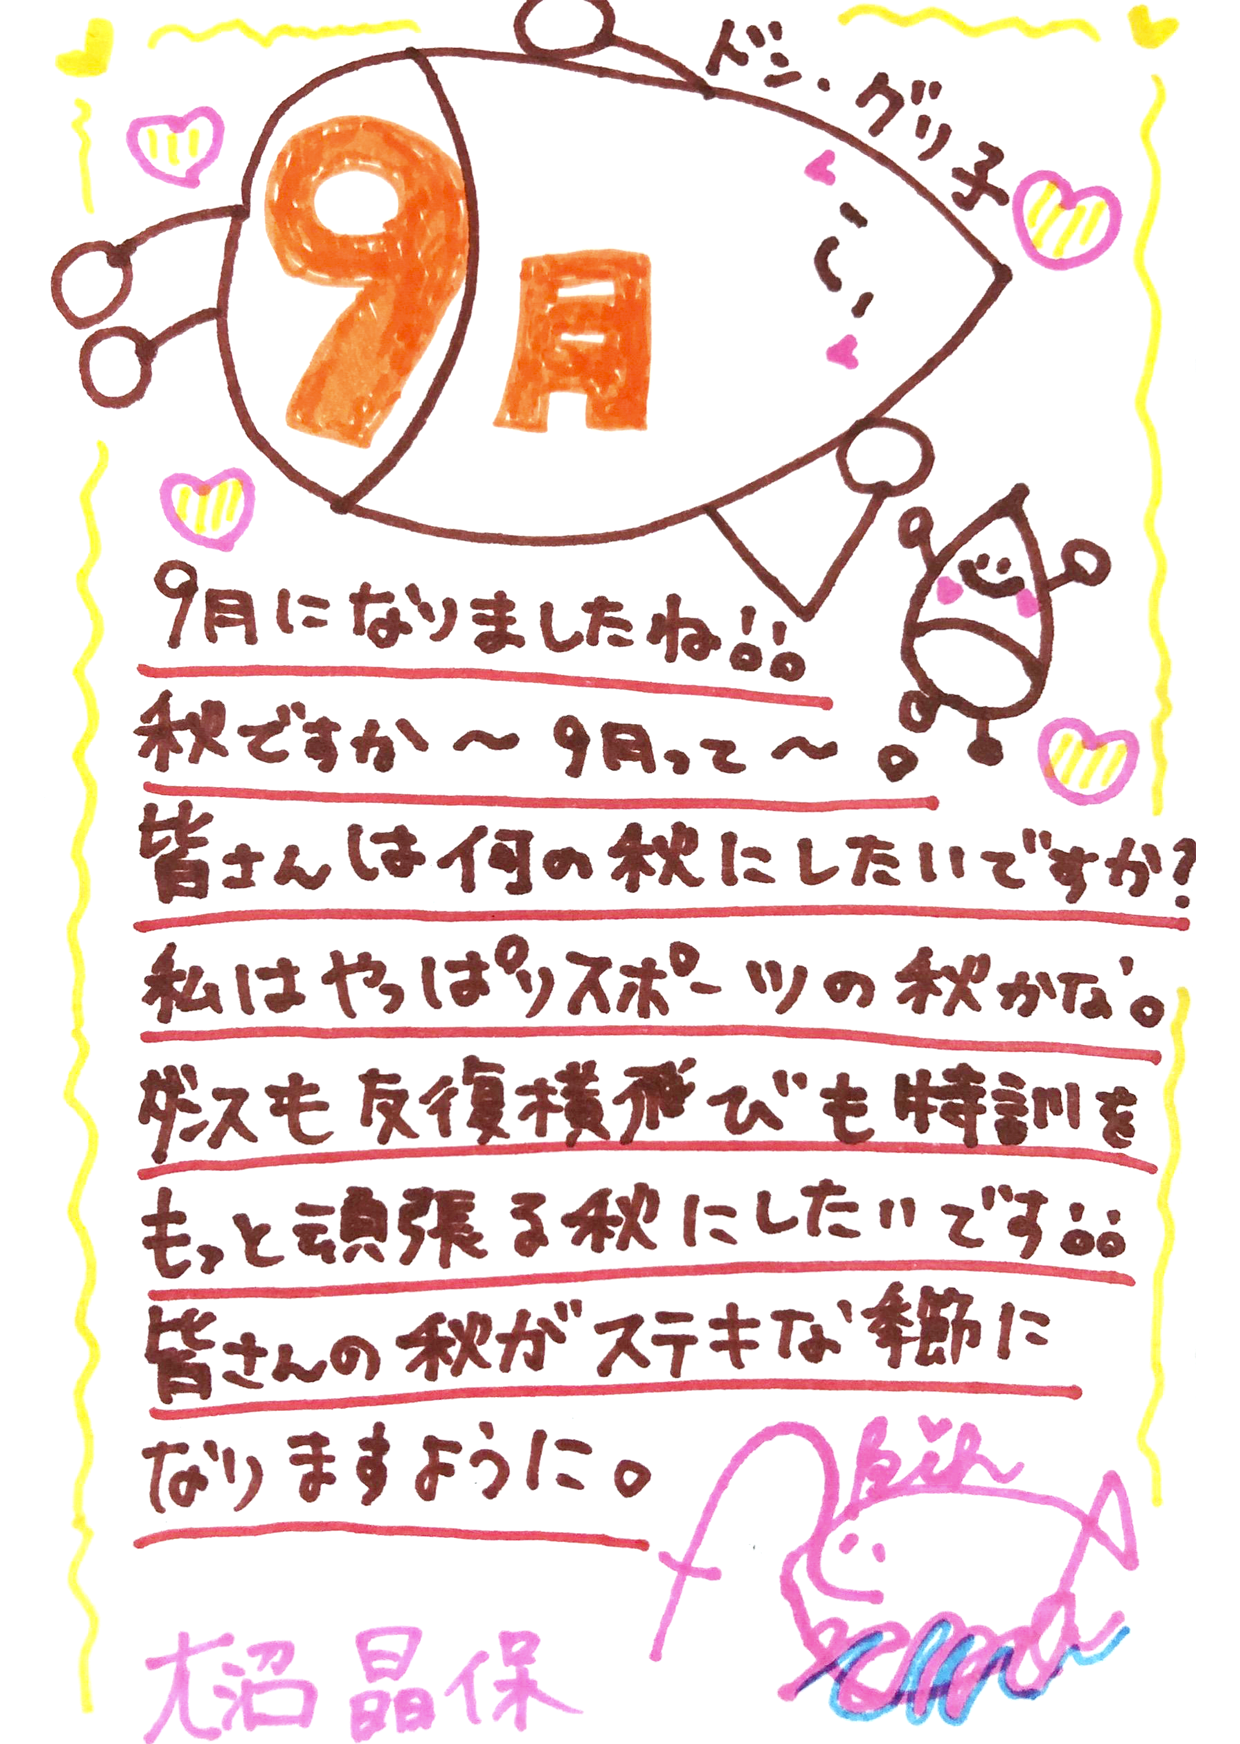 ドン・グリ子
9月
9月になりましたね!!
秋ですか〜9月って〜。
皆さんは何の秋にしたいですか?
私はやっぱりスポーツの秋かな。
ダンスも反復横飛びも特訓を
もっと頑張る秋にしたいです!!
皆さんの秋がステキな季節に
なりますように。
大沼晶保